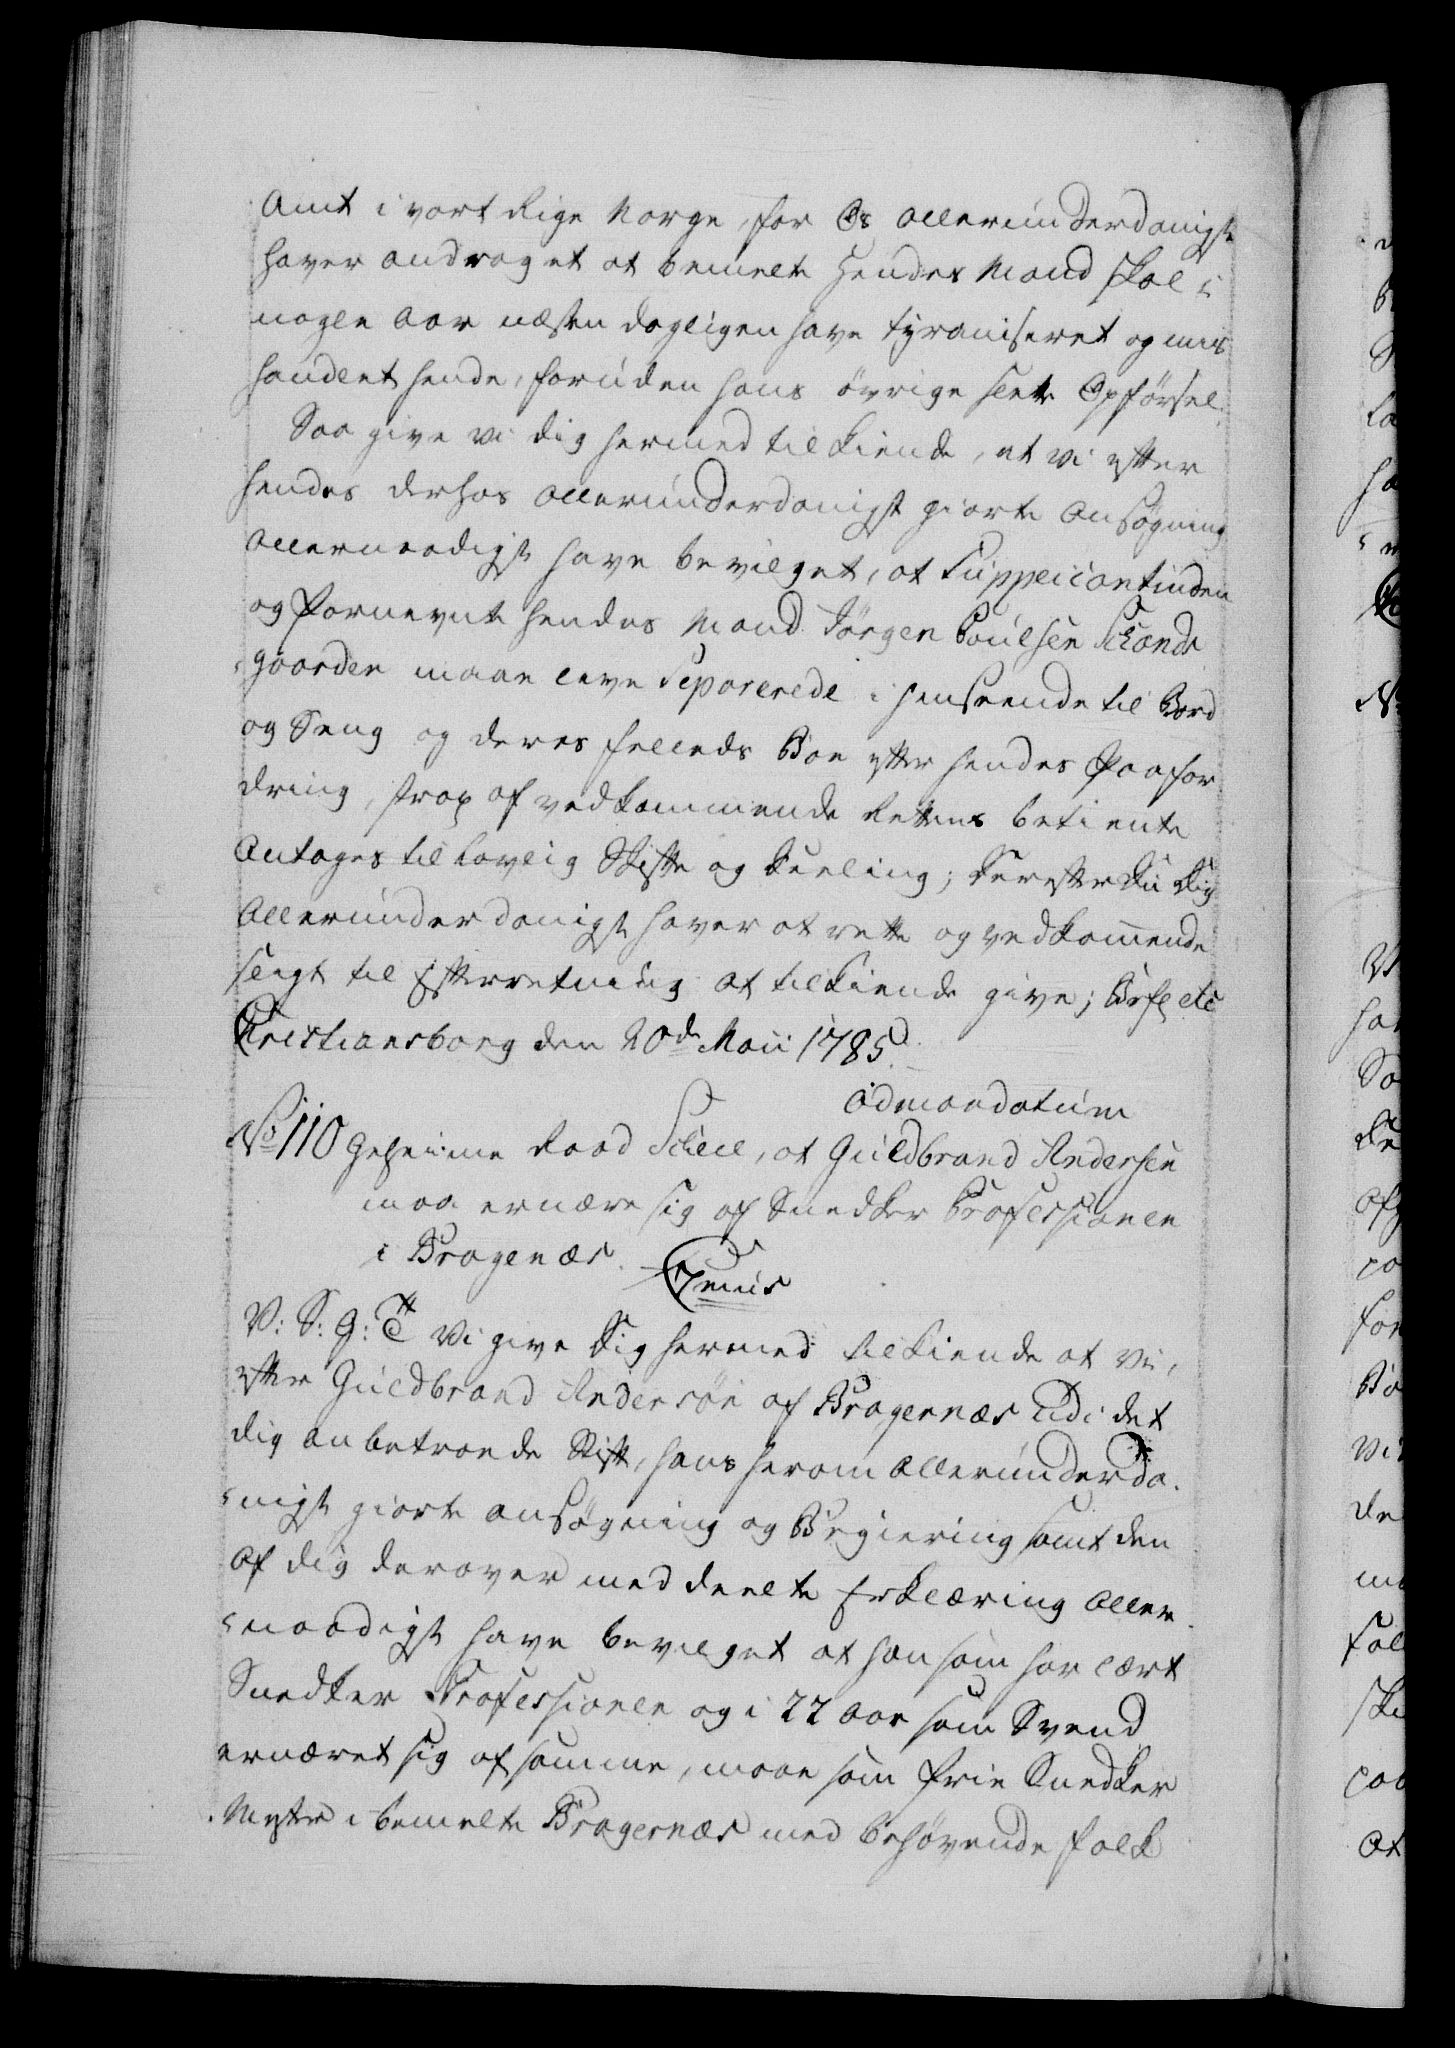 Amt i vort Rige Norge, for Os allerunderdanigst
haver andraget at bemelte hendes Mand skal i
nogle Aar næsten dagligen have tyraniseret og mis
handlet hende, foruden hans övrige slette Opförsel.
Saa give vi dig hermed tilkiende, at vi efter
hendes derhos allerunderdanigst giorte Ansögning
allernaadigst have bevilget, at Supplicantinden
og fornevnte hendes Mand Jörgen Poulsen Schands
gaarden maae leve Separerede i henseende til Bord
og Seng og deres fælleds Boe efter hendes Paafor
dring, strax af vedkommende Rettens betiente
Antages til lovlig Skifte og deeling; derefter du dig
allerunderdanigst haver at rette og vedkommende
sligt til Efterretning at tilkiende give; Bef: etc
Christiansborg den 20de Maii 1785.
admandatum
No 110 Geheime Raad Scheel, at Guldbrand Andersen
maa ernære sig af Snedker Professionen
i Bragenæs.
V: S: G: T Vi give dig hermed tilkiende at vi,
efter Guldbrand Andersön af Bragernæs udi det
dig anbetroede Stift, hans herom allerunderda
nigst giorte ansögning og Begiering samt den
af dig derover meddeelte Erklæring aller
naadigst have bevilget at han som har lært
Snedker Professionen og i 22 Aar som Svend
ernæret sig af samme, maae som frie Snedker
Mester i bemelte Bragernæs med behövende folk